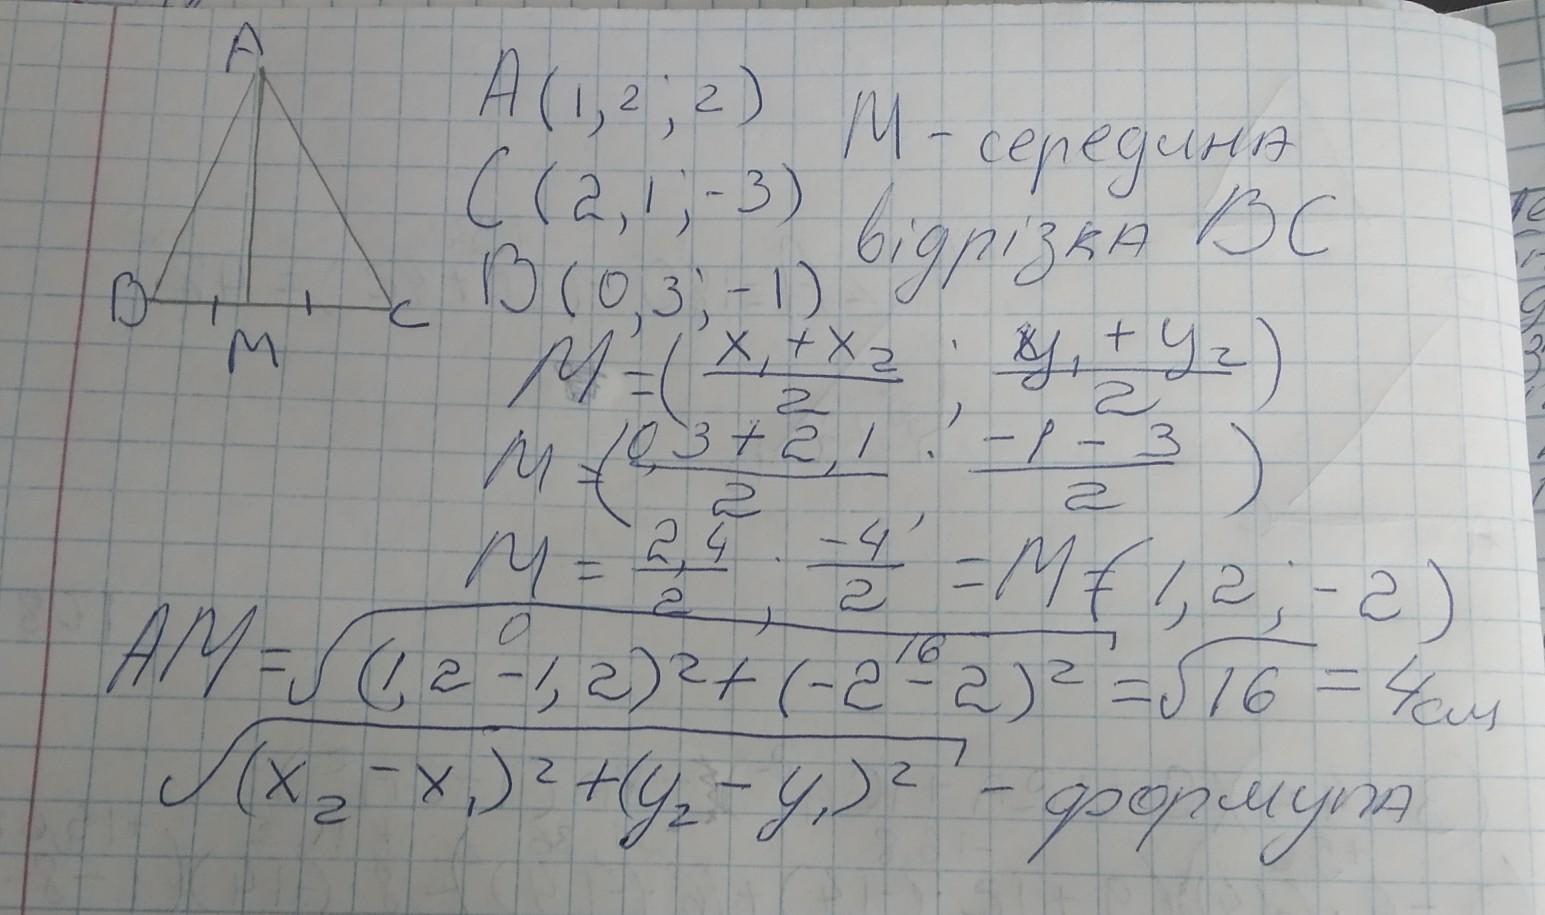 A
B
M
C
A(1,2; 2)
C(2,1; -3)
B(0,3; -1)
M - середина
відрізка BC
M = (x₁+x₂/2 ; y₁+y₂/2)
M = (0,3+2,1/2 ; -1-3/2)
M = 2,4/2 ; -4/2 = M = (1,2; -2)
AM = √(1,2-1,2)² + (-2-2)² = √16 = 4см
0
16
√(x₂-x₁)²+(y₂-y₁)² - формула